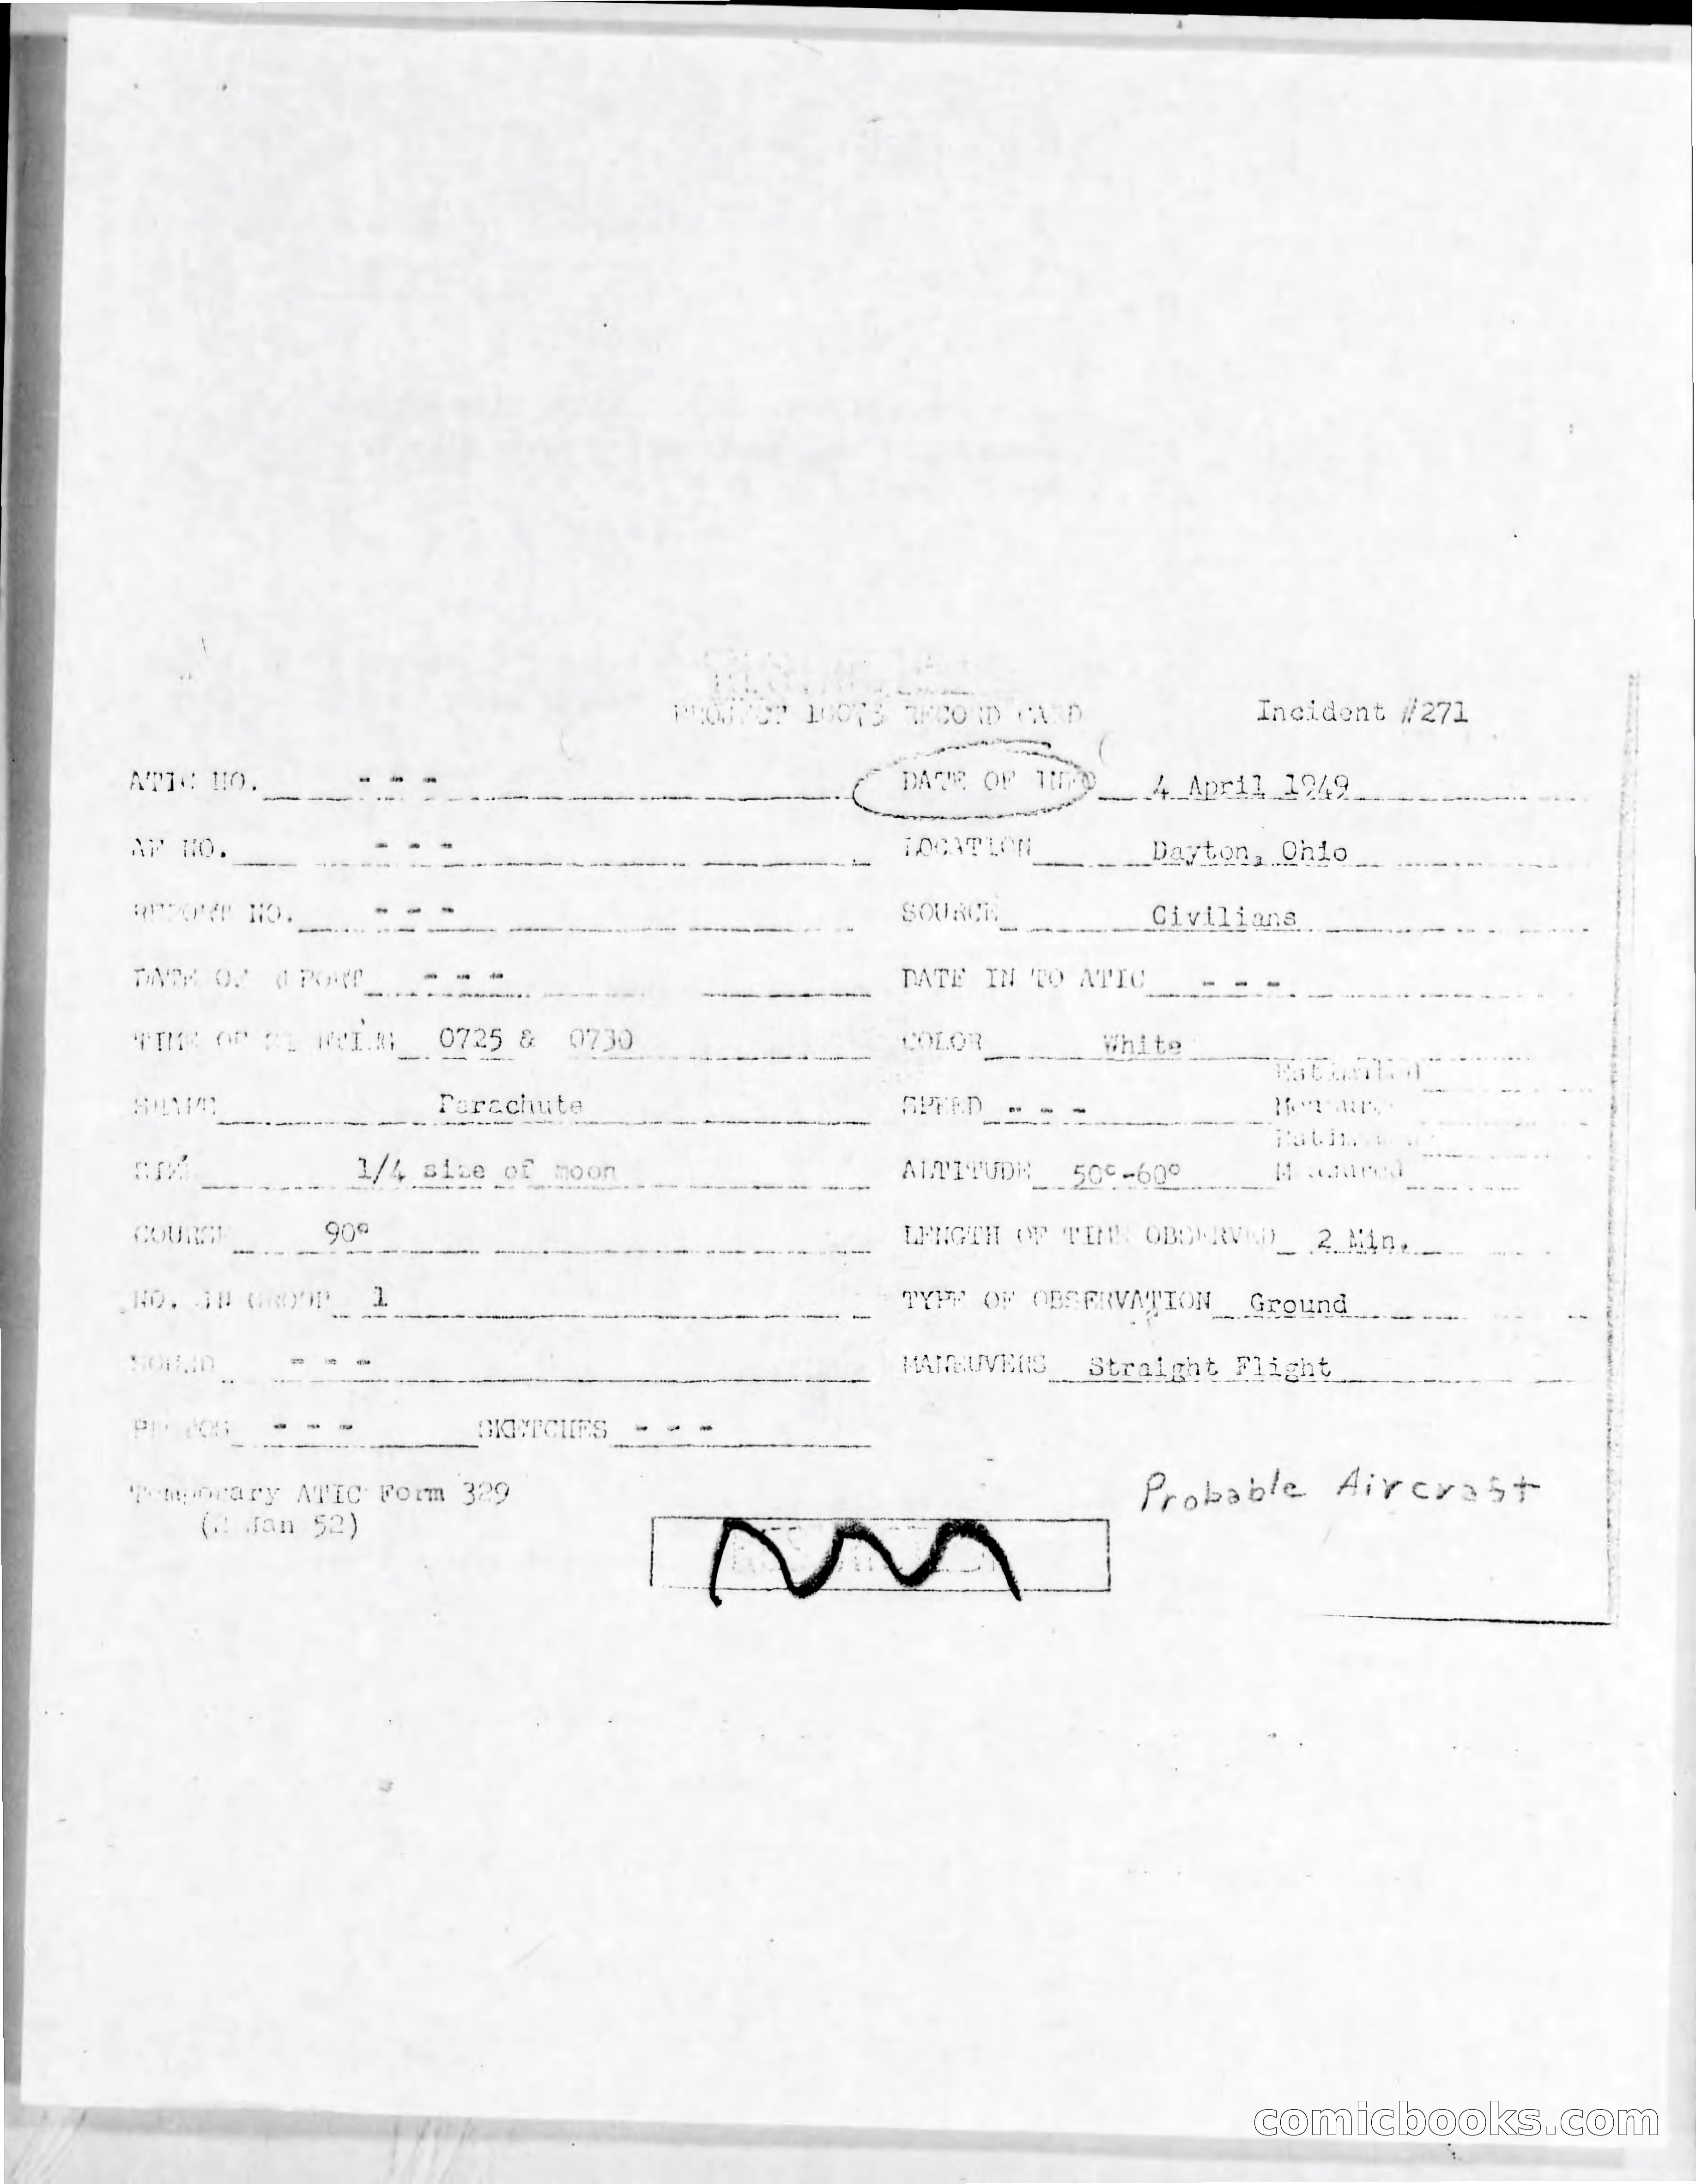 PROJECT 10073 RECORD CARD Incident #271
ATIC NO. - - - DATE OF INFO 4 April 1949
AF NO. - - - LOCATION Dayton, Ohio
REPORT NO. - - - SOURCE Civilians
DATE OF REPORT - - - DATE IN TO ATIC - - -
TIME OF SIGHTING 0725 & 0730 COLOR White
Estimated
SHAPE Parachute SPEED - - - Measured
Estimated
SIZE 1/4 size of moon ALTITUDE 50°-60° Measured
COURSE 90° LENGTH OF TIME OBSERVED 2 Min.
NO. IN GROUP 1 TYPE OF OBSERVATION Ground
SOUND - - - MANEUVERS Straight Flight
PHOTOS - - - SKETCHES - - -
Temporary ATIC Form 329
(2 Jan 52)
Probable Aircraft
comicbooks.com